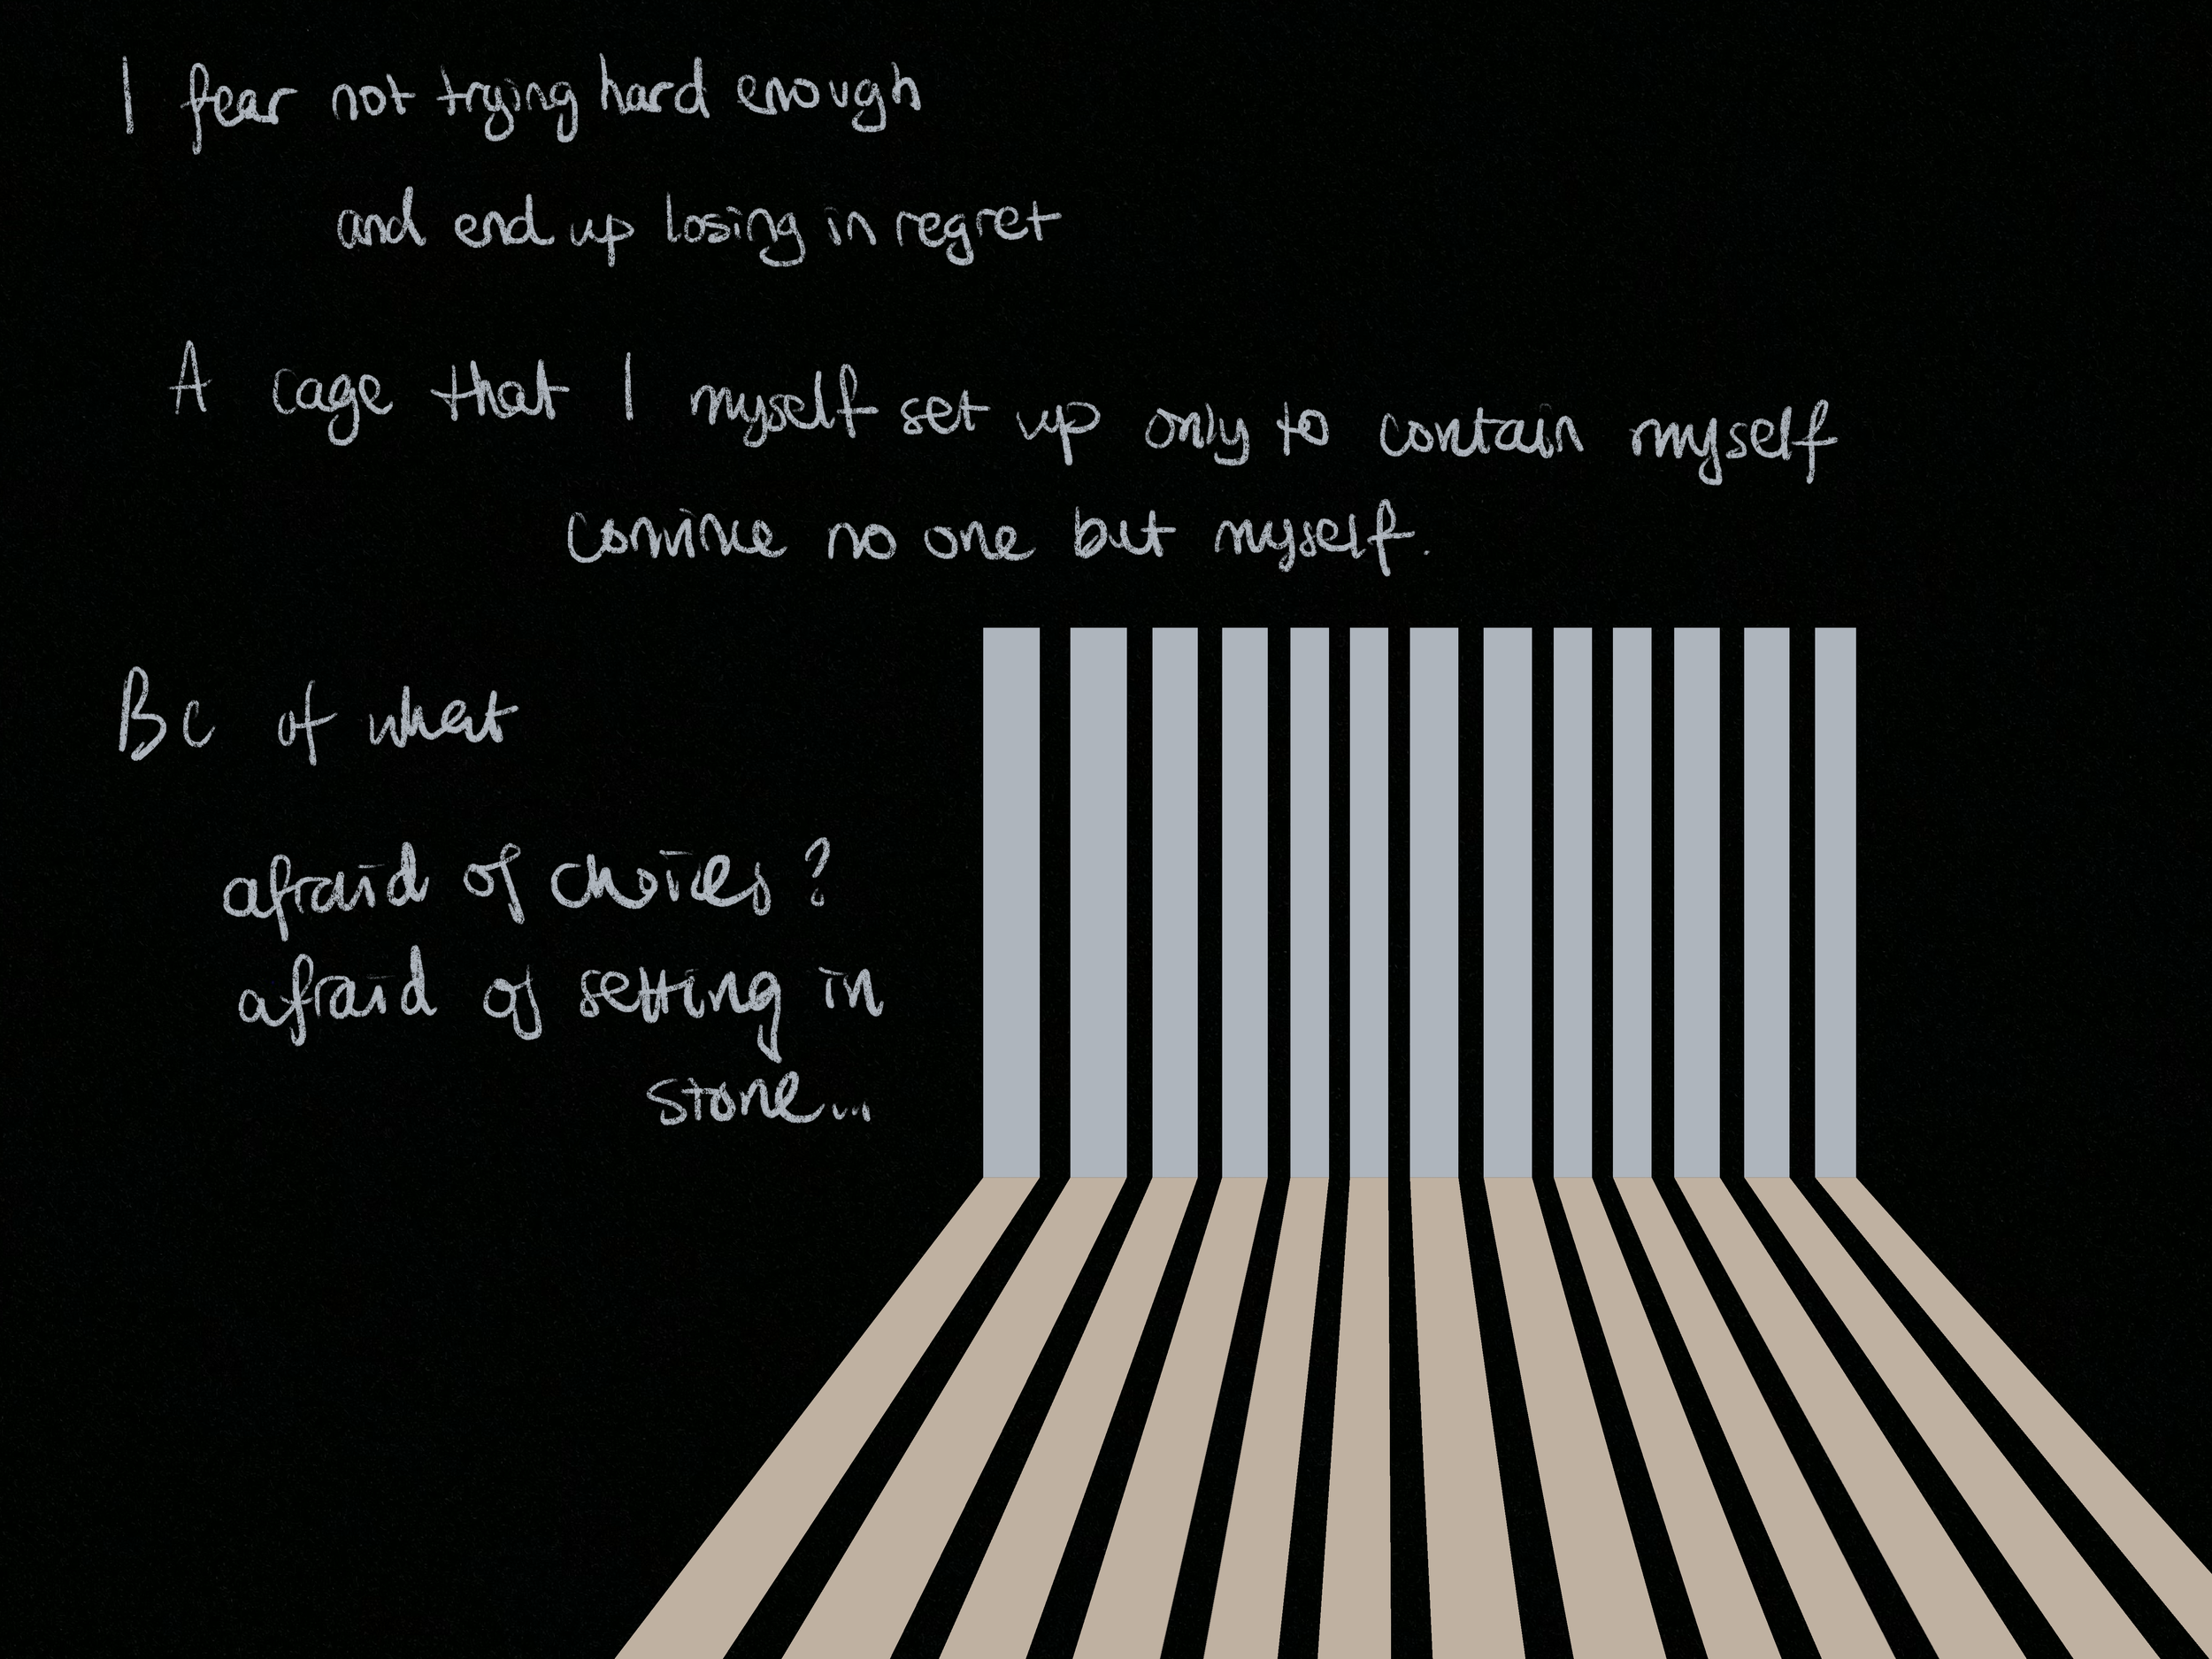 I fear not trying hard enough
and end up losing in regret
A cage that I myself set up only to contain myself
convince no one but myself.
Bc of what
afraid of choices?
afraid of setting in
stone...